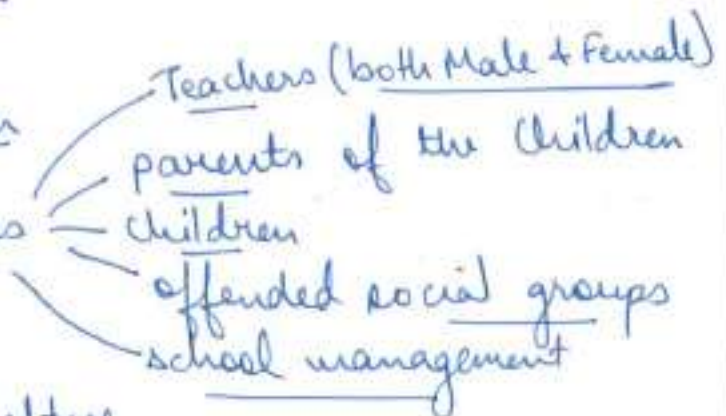 Teachers (both Male & Female)
parents of the Children
children
offended social groups
school management